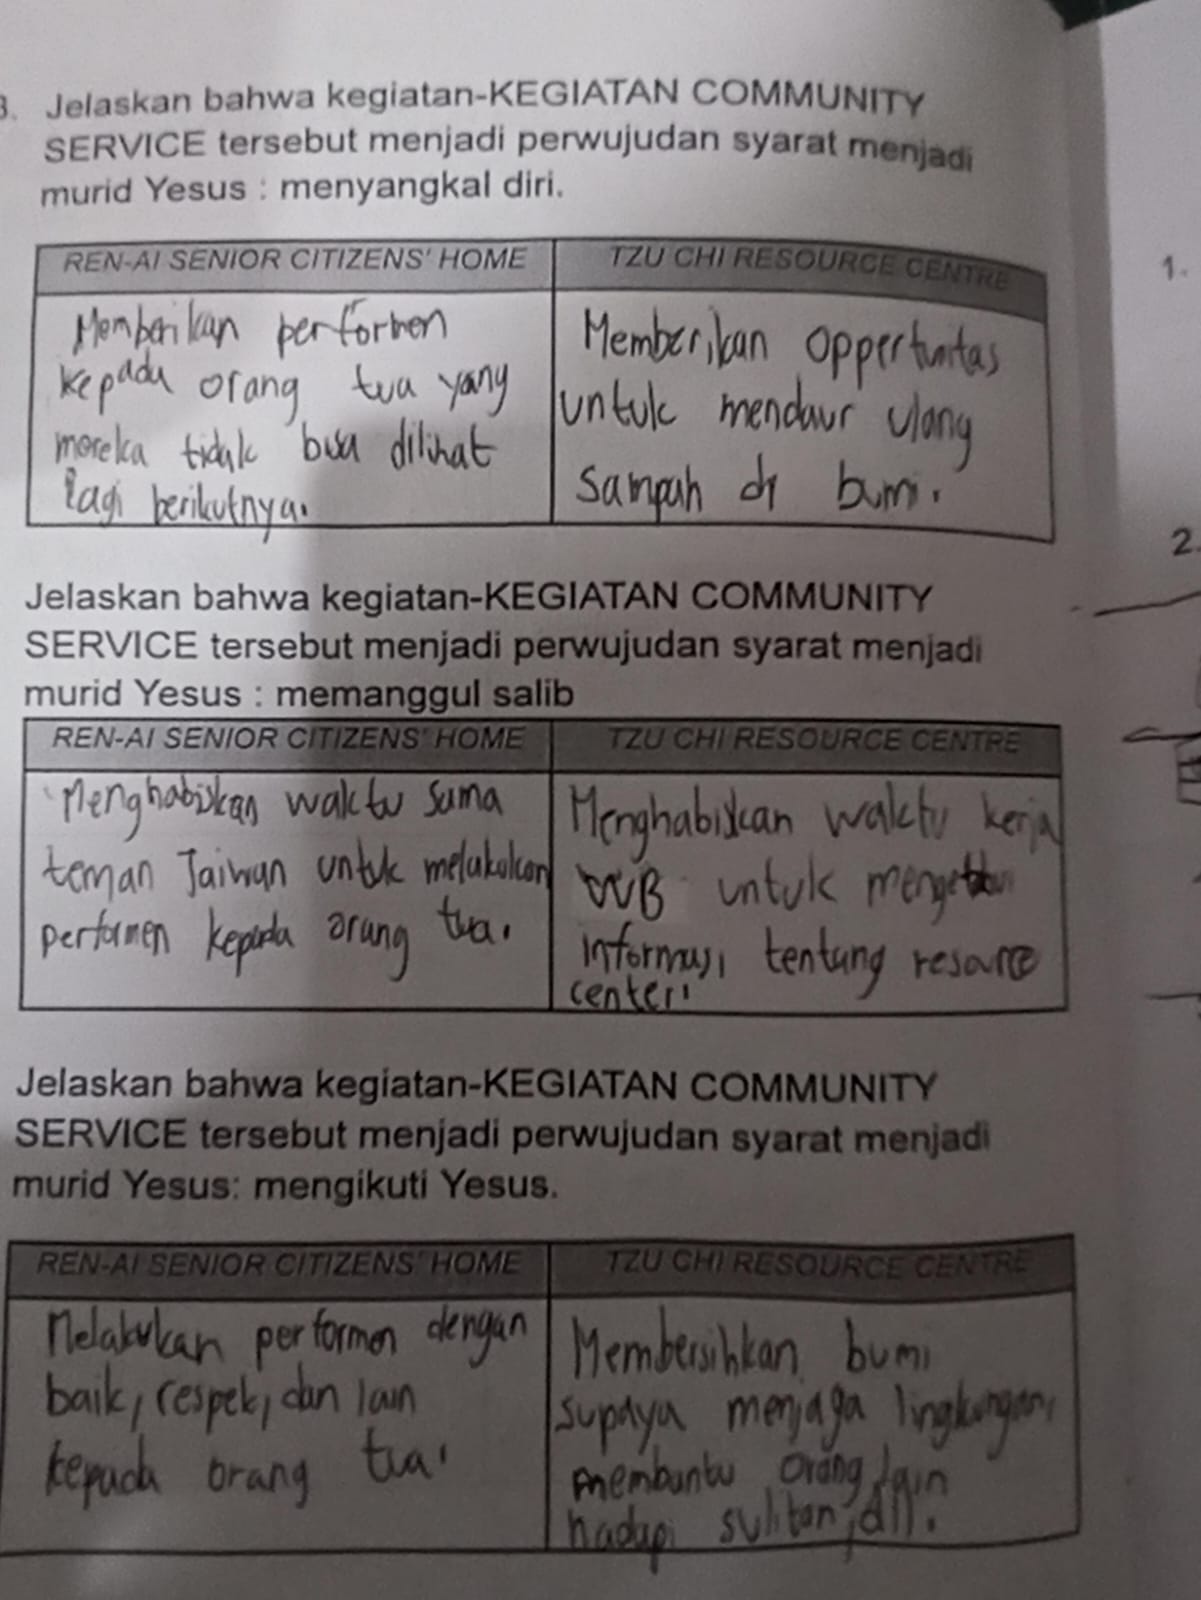 3. Jelaskan bahwa kegiatan-KEGIATAN COMMUNITY
SERVICE tersebut menjadi perwujudan syarat menjadi
murid Yesus : menyangkal diri.
REN-AI SENIOR CITIZENS' HOME
Memberikan performen
kepada orang tua yang
mereka tidak bisa dilihat
lagi berikutnya.
TZU CHI RESOURCE CENTRE
Memberikan oppertunitas
untuk mendaur ulang
sampah di bumi.
Jelaskan bahwa kegiatan-KEGIATAN COMMUNITY
SERVICE tersebut menjadi perwujudan syarat menjadi
murid Yesus : memanggul salib
REN-AI SENIOR CITIZENS' HOME
Menghabiskan waktu sama
teman Taiwan untuk melakukan
performen kepada orang tua.
TZU CHI RESOURCE CENTRE
Menghabiskan waktu kerja
untuk
informasi tentang resource
center.
Jelaskan bahwa kegiatan-KEGIATAN COMMUNITY
SERVICE tersebut menjadi perwujudan syarat menjadi
murid Yesus: mengikuti Yesus.
REN-AI SENIOR CITIZENS' HOME
Melakukan performen dengan
baik, respek, dan lain
kepada orang tua.
TZU CHI RESOURCE CENTRE
Membersihkan bumi
supaya menjaga lingkungan,
membantu orang lain
hadapi sulitan, dll.
1.
2.